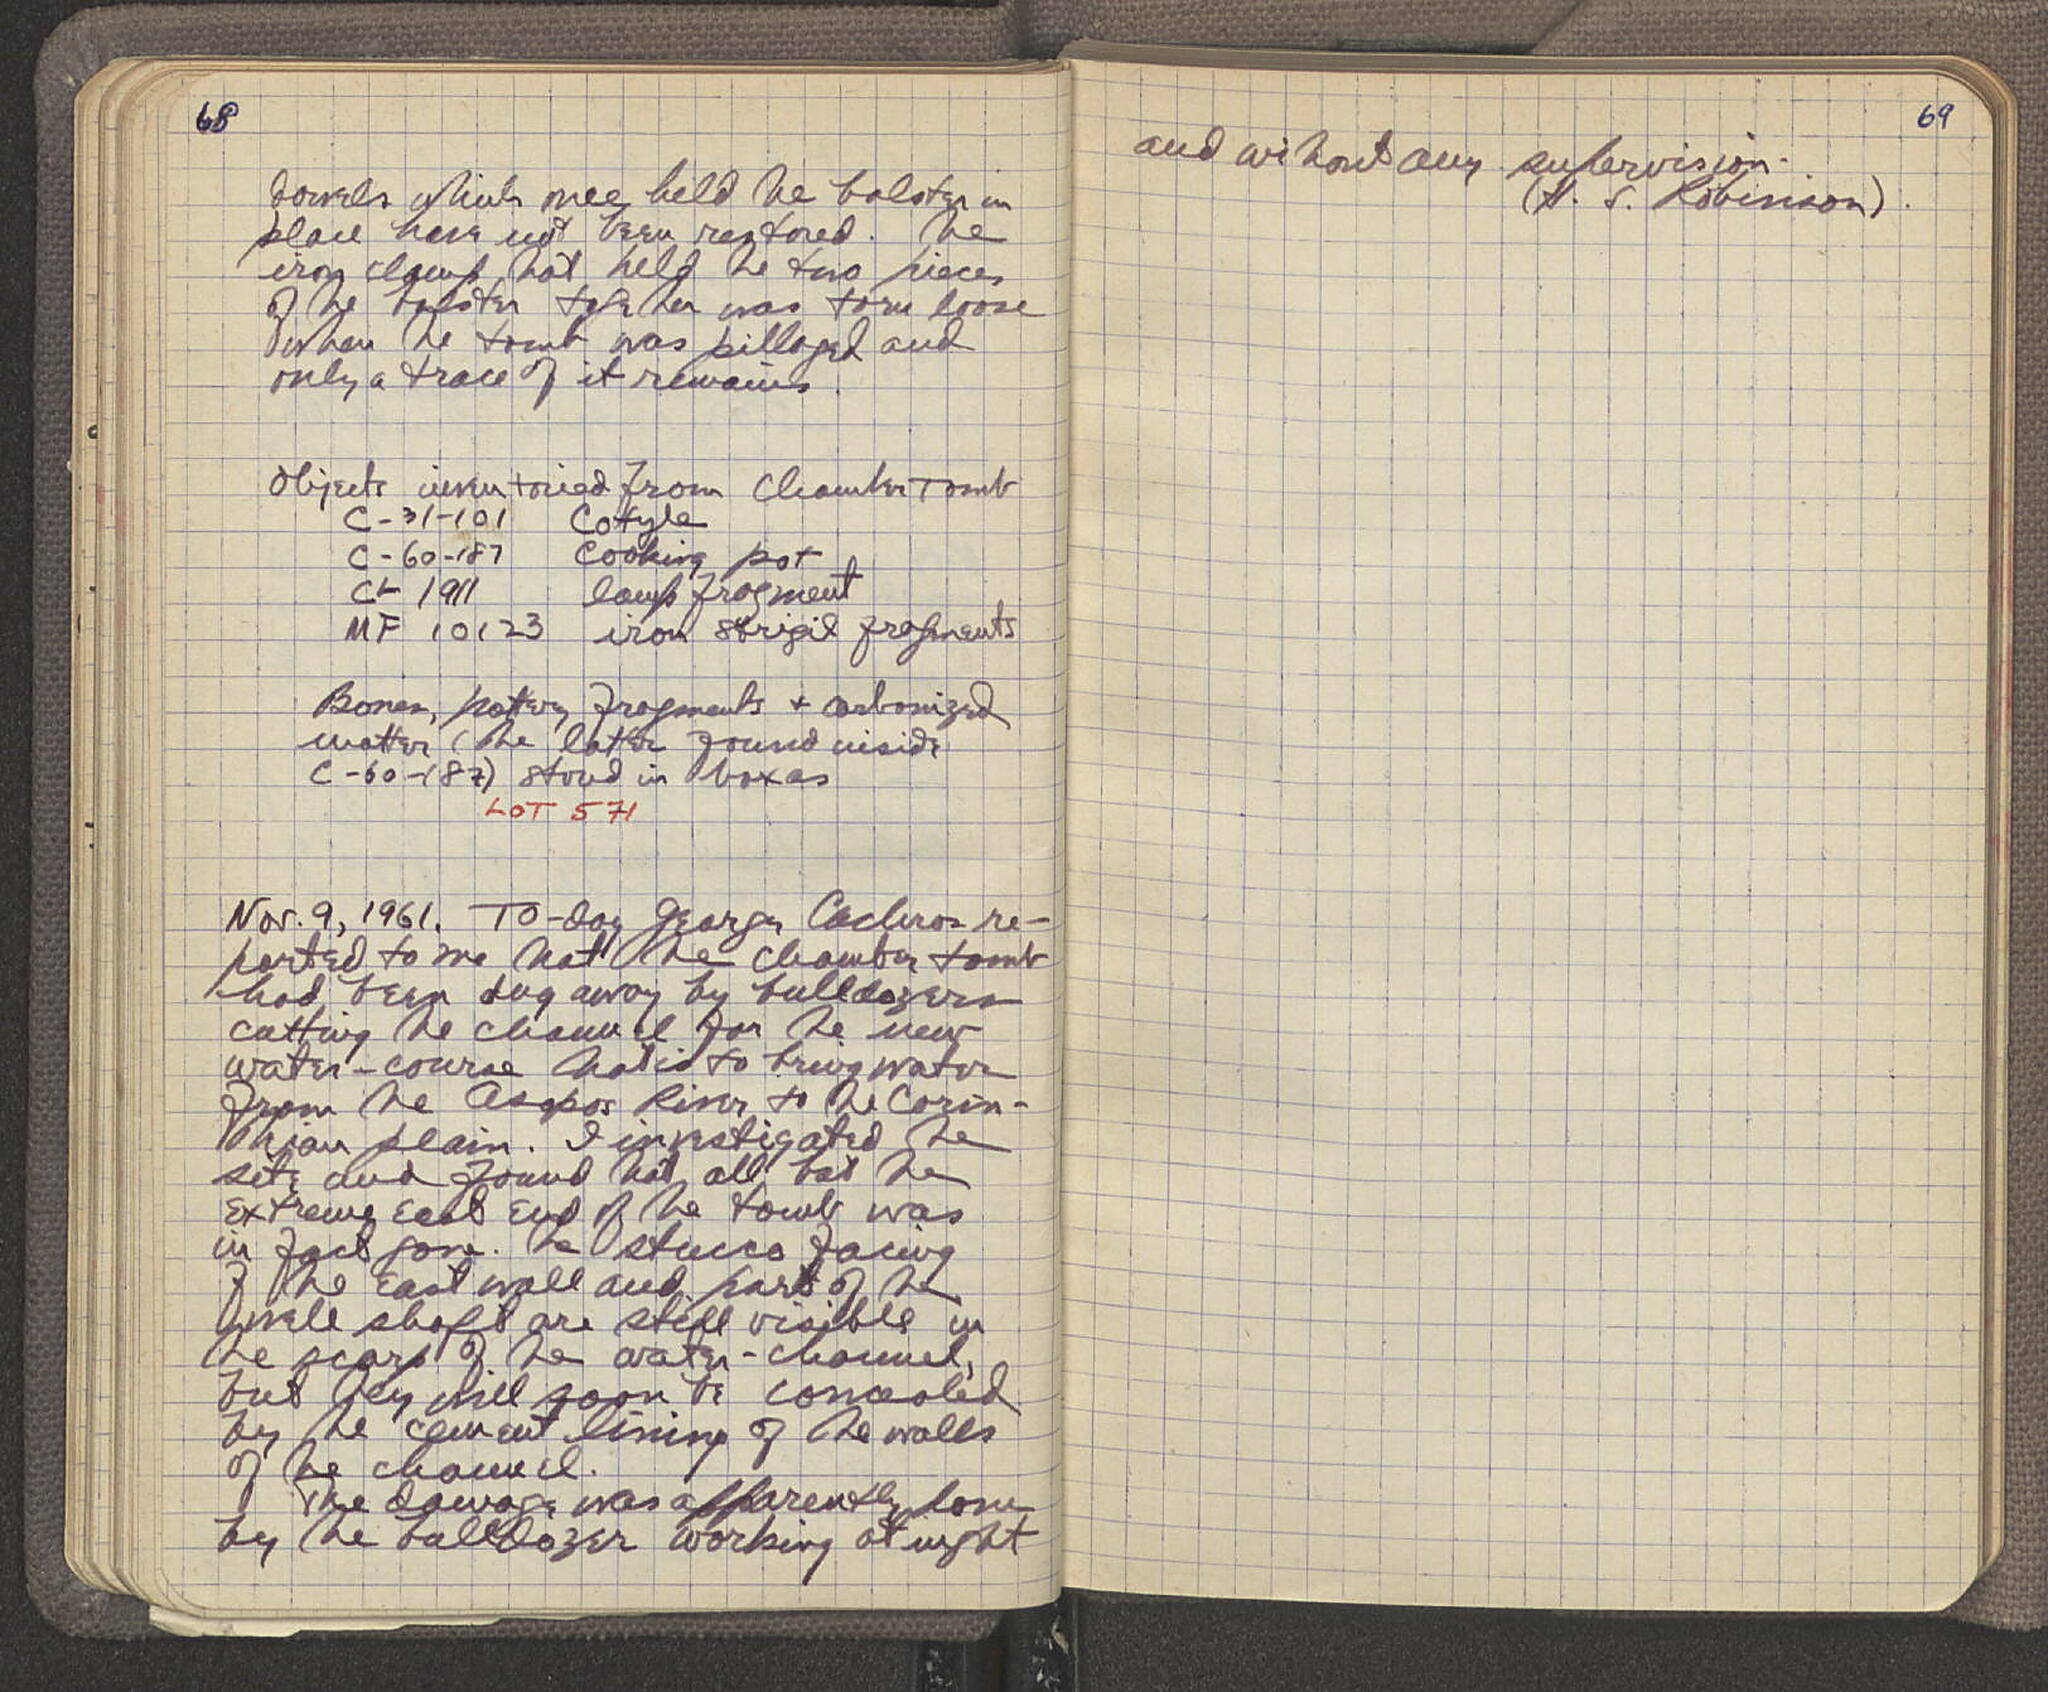 68
dowels which once held the bolster in
place have not been restored. The
iron clamp that held the two pieces
of the bolster together was torn loose
when the tomb was pillaged and
only a trace of it remains.
Objects inventoried from Chamber Tomb
C-31-101 Cotyle
C-60-187 Cooking pot
CL 1911 lamp fragment
MF 10123 iron strigil fragments
Bones, pottery fragments + carbonized
matter (the latter found inside
C-60-187) stored in box as
LOT 571
Nov. 9, 1961. To-day George Cachros re-
ported to me that the chamber tomb
had been dug away by bulldozers
cutting the channel for the new
water-course that is to bring water
from the Asopos River to the Corin-
thian plain. I investigated the
site and found that all but the
extreme east end of the tomb was
in fact gone. The stucco facing
of the east wall and part of the
well shaft are still visible in
the scarp of the water-channel,
but they will soon be concealed
by the cement lining of the walls
of the channel.
The damage was apparently done
by the bulldozer working at night
69
and without any supervision.
(H. S. Robinson).